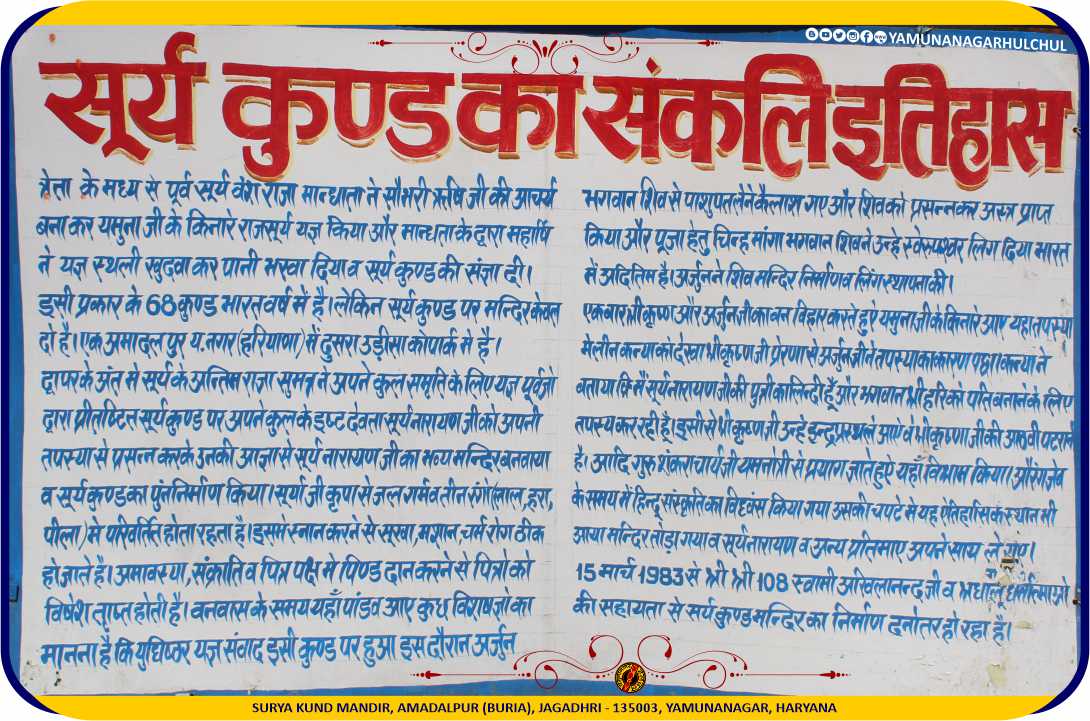 YAMUNANAGARHULCHUL
सूर्य कुण्ड का संकलि इतिहास
त्रेता के मध्य से पूर्व सूर्य वंश राजा मान्धाता ने सौभरी ऋषि जी की आचार्य
बना कर यमुना जी के किनारे राजसूर्य यज्ञ किया और मान्धता के द्वारा महार्षि
ने यज्ञ स्थली खुदवा कर पानी भरवा दिया व सूर्य कुण्ड की संज्ञा दी।
इसी प्रकार के 68 कुण्ड भारतवर्ष में है। लेकिन सूर्य कुण्ड पर मन्दिर केवल
दो है। एक अमादल पुर य. नगर (हरियाणा) में दुसरा उड़ीसा कोपार्क मे है।
द्वापर के अंत मे सूर्य के अन्तिम राजा सुमन्न ने अपने कुल समृति के लिए यज्ञ पूर्वजो
द्वारा प्रीतष्टित सूर्य कुण्ड पर अपने कुल के इष्ट देवता सूर्य नारायण जी को अपनी
तपस्या से प्रसन्न करके उनकी आज्ञा से सूर्य नारायण जी का भव्य मन्दिर बनवाया
व सूर्य कुण्ड का पुंननिर्माण किया। सूर्या जी कृपा से जल गर्मव तीन रंगो (लाल, हरा,
पीला) मे परिवर्तित होता रहता है। इसमे स्नान करने से सूखा, मशान, चर्म रोग ठीक
हो जाते है। अमावस्या, संक्राति व पित्र पक्ष मे पिण्ड दान करने से पित्रो को
विषेश तृप्त होती है। वनवास के समय यहाँ पांडव आए कुछ विशेषज्ञो का
मानना है कि युधिष्ठर यज्ञ संवाद इसी कुण्ड पर हुआ इस दौरान अर्जुन
भगवान शिव से पाशुपत लेने कैलाश गए और शिव को प्रसन्न कर अस्त्र प्राप्त
किया और पूजा हेतु चिन्ह मांगा भगवान शिव ने उन्हे लिंग दिया भारत
में अदितिम है। अर्जुन ने शिव मन्दिर निर्माण व लिंग स्थापना की।
एक बार श्री कृष्ण और अर्जुन जी का वन विहार करते हुऐ यमुना जी के किनारे आए यहा तपस्या
मे लीन कन्या को देखा श्री कृष्ण जी प्रेरणा से अर्जुन जी ने तपस्या का कारण पूछा। कन्या ने
बताया कि मैं सूर्य नारायण जी की पुत्री कालिन्दी हूँ और भगवान श्री हरि को पति बनाने के लिए
तपस्य कर रही हूँ। इसी से श्री कृष्ण जी उन्हे इन्द्रप्रस्थ ले आए व श्री कृष्णा जी की आठवी पटरानी
है। आदि गुरु शंकराचार्य जी यमनोत्री से प्रयाग जाते हुऐ यहाँ विश्राम किया। औरंगजेव
के समय में हिन्दू संस्कृति का विध्वंस किया गया उसकी चपटे मे यह ऐतिहासिक स्थान भी
आया मन्दिर तोड़ा गया व सूर्य नारायण व अन्य प्रतिमाए अपने साथ ले गए।
15 मार्च 1983 से श्री श्री 108 स्वामी अखिलानन्द जी व श्रधालू धर्मात्माओ
की सहायता से सर्य कुण्ड मन्दिर का निर्माण दनोतर हो रहा है।
SURYA KUND MANDIR, AMADALPUR (BURIA), JAGADHRI - 135003, YAMUNANAGAR, HARYANA